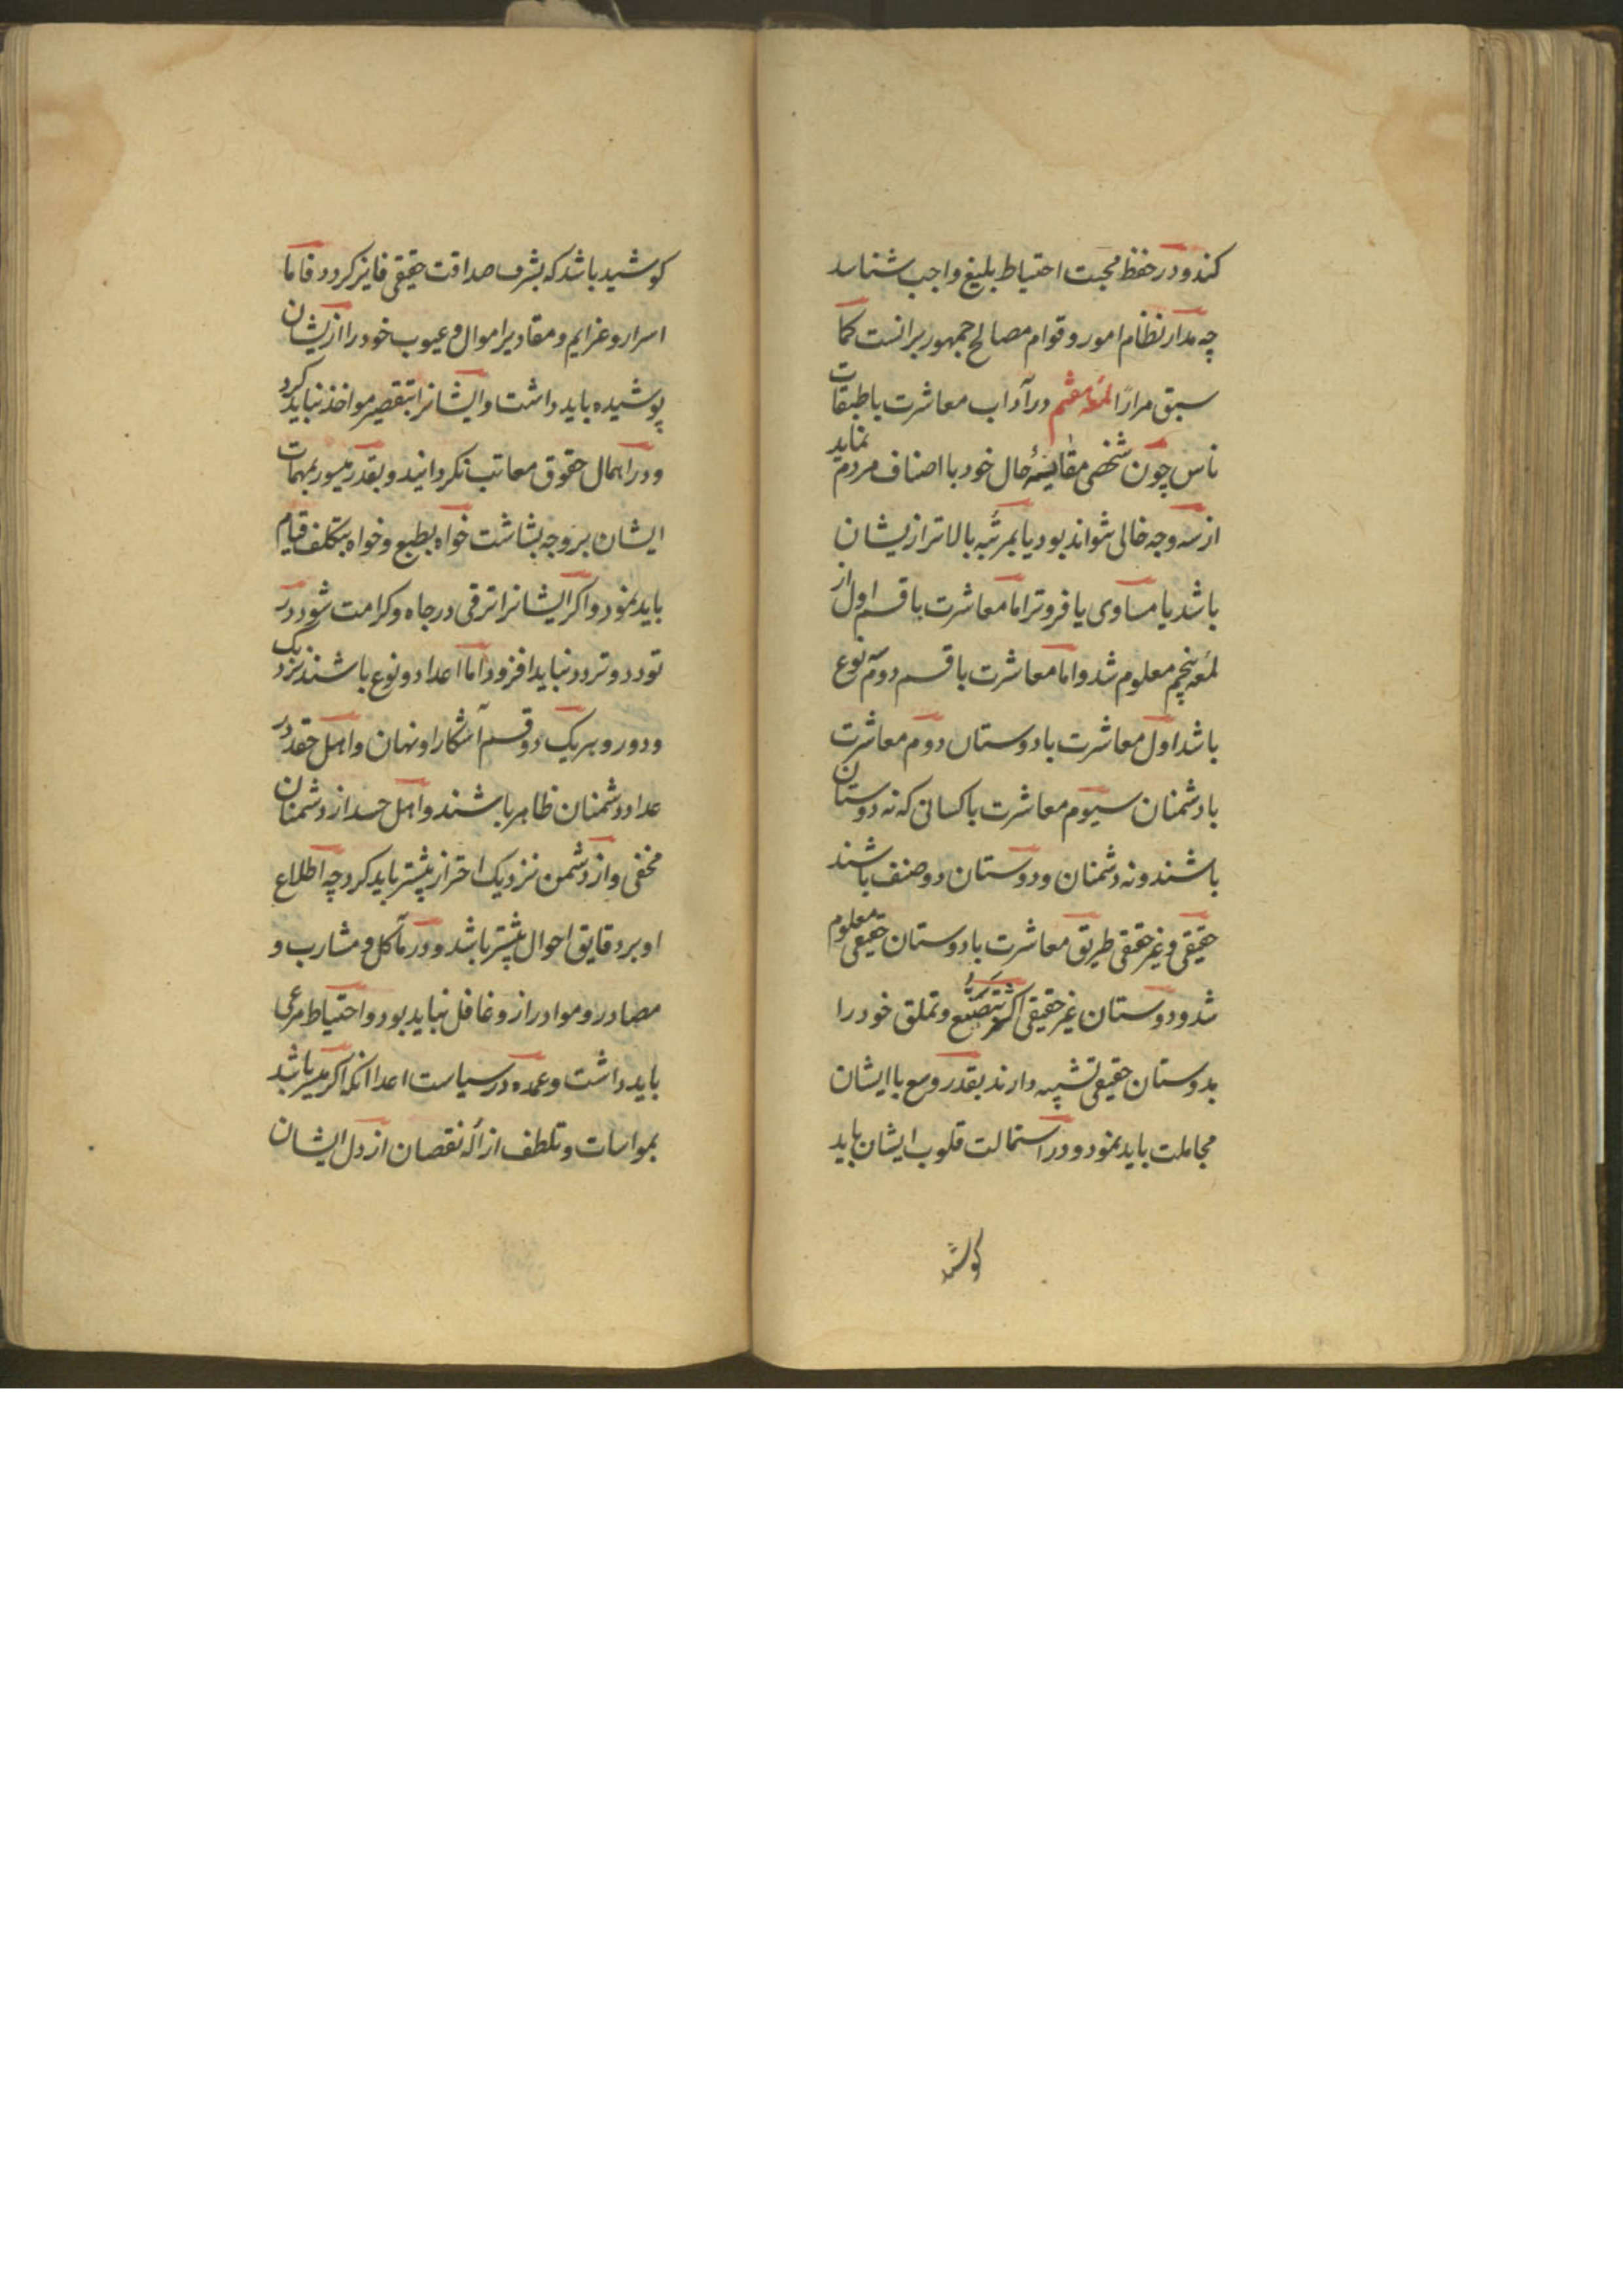 کند و در حفظ محبت احتیاط بلیغ واجب شناسد
چه مدار نظام امور و قوام مصالح جمهور برانست کما
سبق مرارًا لمعه در آداب معاشرت با طبقات
ناس چون شخصی مقایسهٔ حال خود با اصناف مردم نماید
از سه وجه خالی نتواند بود یا بمرتبه بالاتر ازیشان
باشد یا مساوی یا فروتر اما معاشرت با قسم اول از
لمعه پنجم معلوم شد و اما معاشرت با قسم دوم سه نوع
باشد اول معاشرت با دوستان دوم معاشرت
با دشمنان سیوم معاشرت با کسانی که نه دوستان
باشند و نه دشمنان و دوستان دو صنف باشند
حقیقی و غیر حقیقی طریق معاشرت با دوستان حقیقی معلوم
شد و دوستان غیر حقیقی که بتصنع و تملق خود را
بدوستان حقیقی تشبیه دارند بقدر وسع با ایشان
مجاملت باید نمود و در استمالت قلوب ایشان باید
کوشید
کوشید باشد که بشرف صداقت حقیقی فایز کردد فاما
اسرار و عزایم و مقادیر اموال و عیوب خود را ازیشان
پوشیده باید داشت و ایشانرا بتقصیر مواخذ نباید کرد
و در اهمال حقوق معاتب نکردانید و بقدر میسور بمهمات
ایشان بر وجه بشاشت خواه بطبع و خواه بتکلف قیام
باید نمود و اکر ایشانرا ترقی در جاه و کرامت شود در
تودد و تردد نباید افزود اما اعدا دو نوع باشند نزدیک
و دور و هر یک دو قسم آشکارا و نهان و اهل حقد در
عداد دشمنان ظاهر باشند و اهل حسد از دشمنان
مخفی و از دشمن نزدیک احتراز بیشتر باید کرد چه اطلاع
او بر دقایق احوال بیشتر باشد و در مآکل و مشارب و
مصادر و موادر ازو غافل نباید بود و احتیاط مرعی
باید داشت و عمده در سیاست اعدا انکه اکر میسر باشد
بمواسات و تلطف ازاله نقصان از دل ایشان